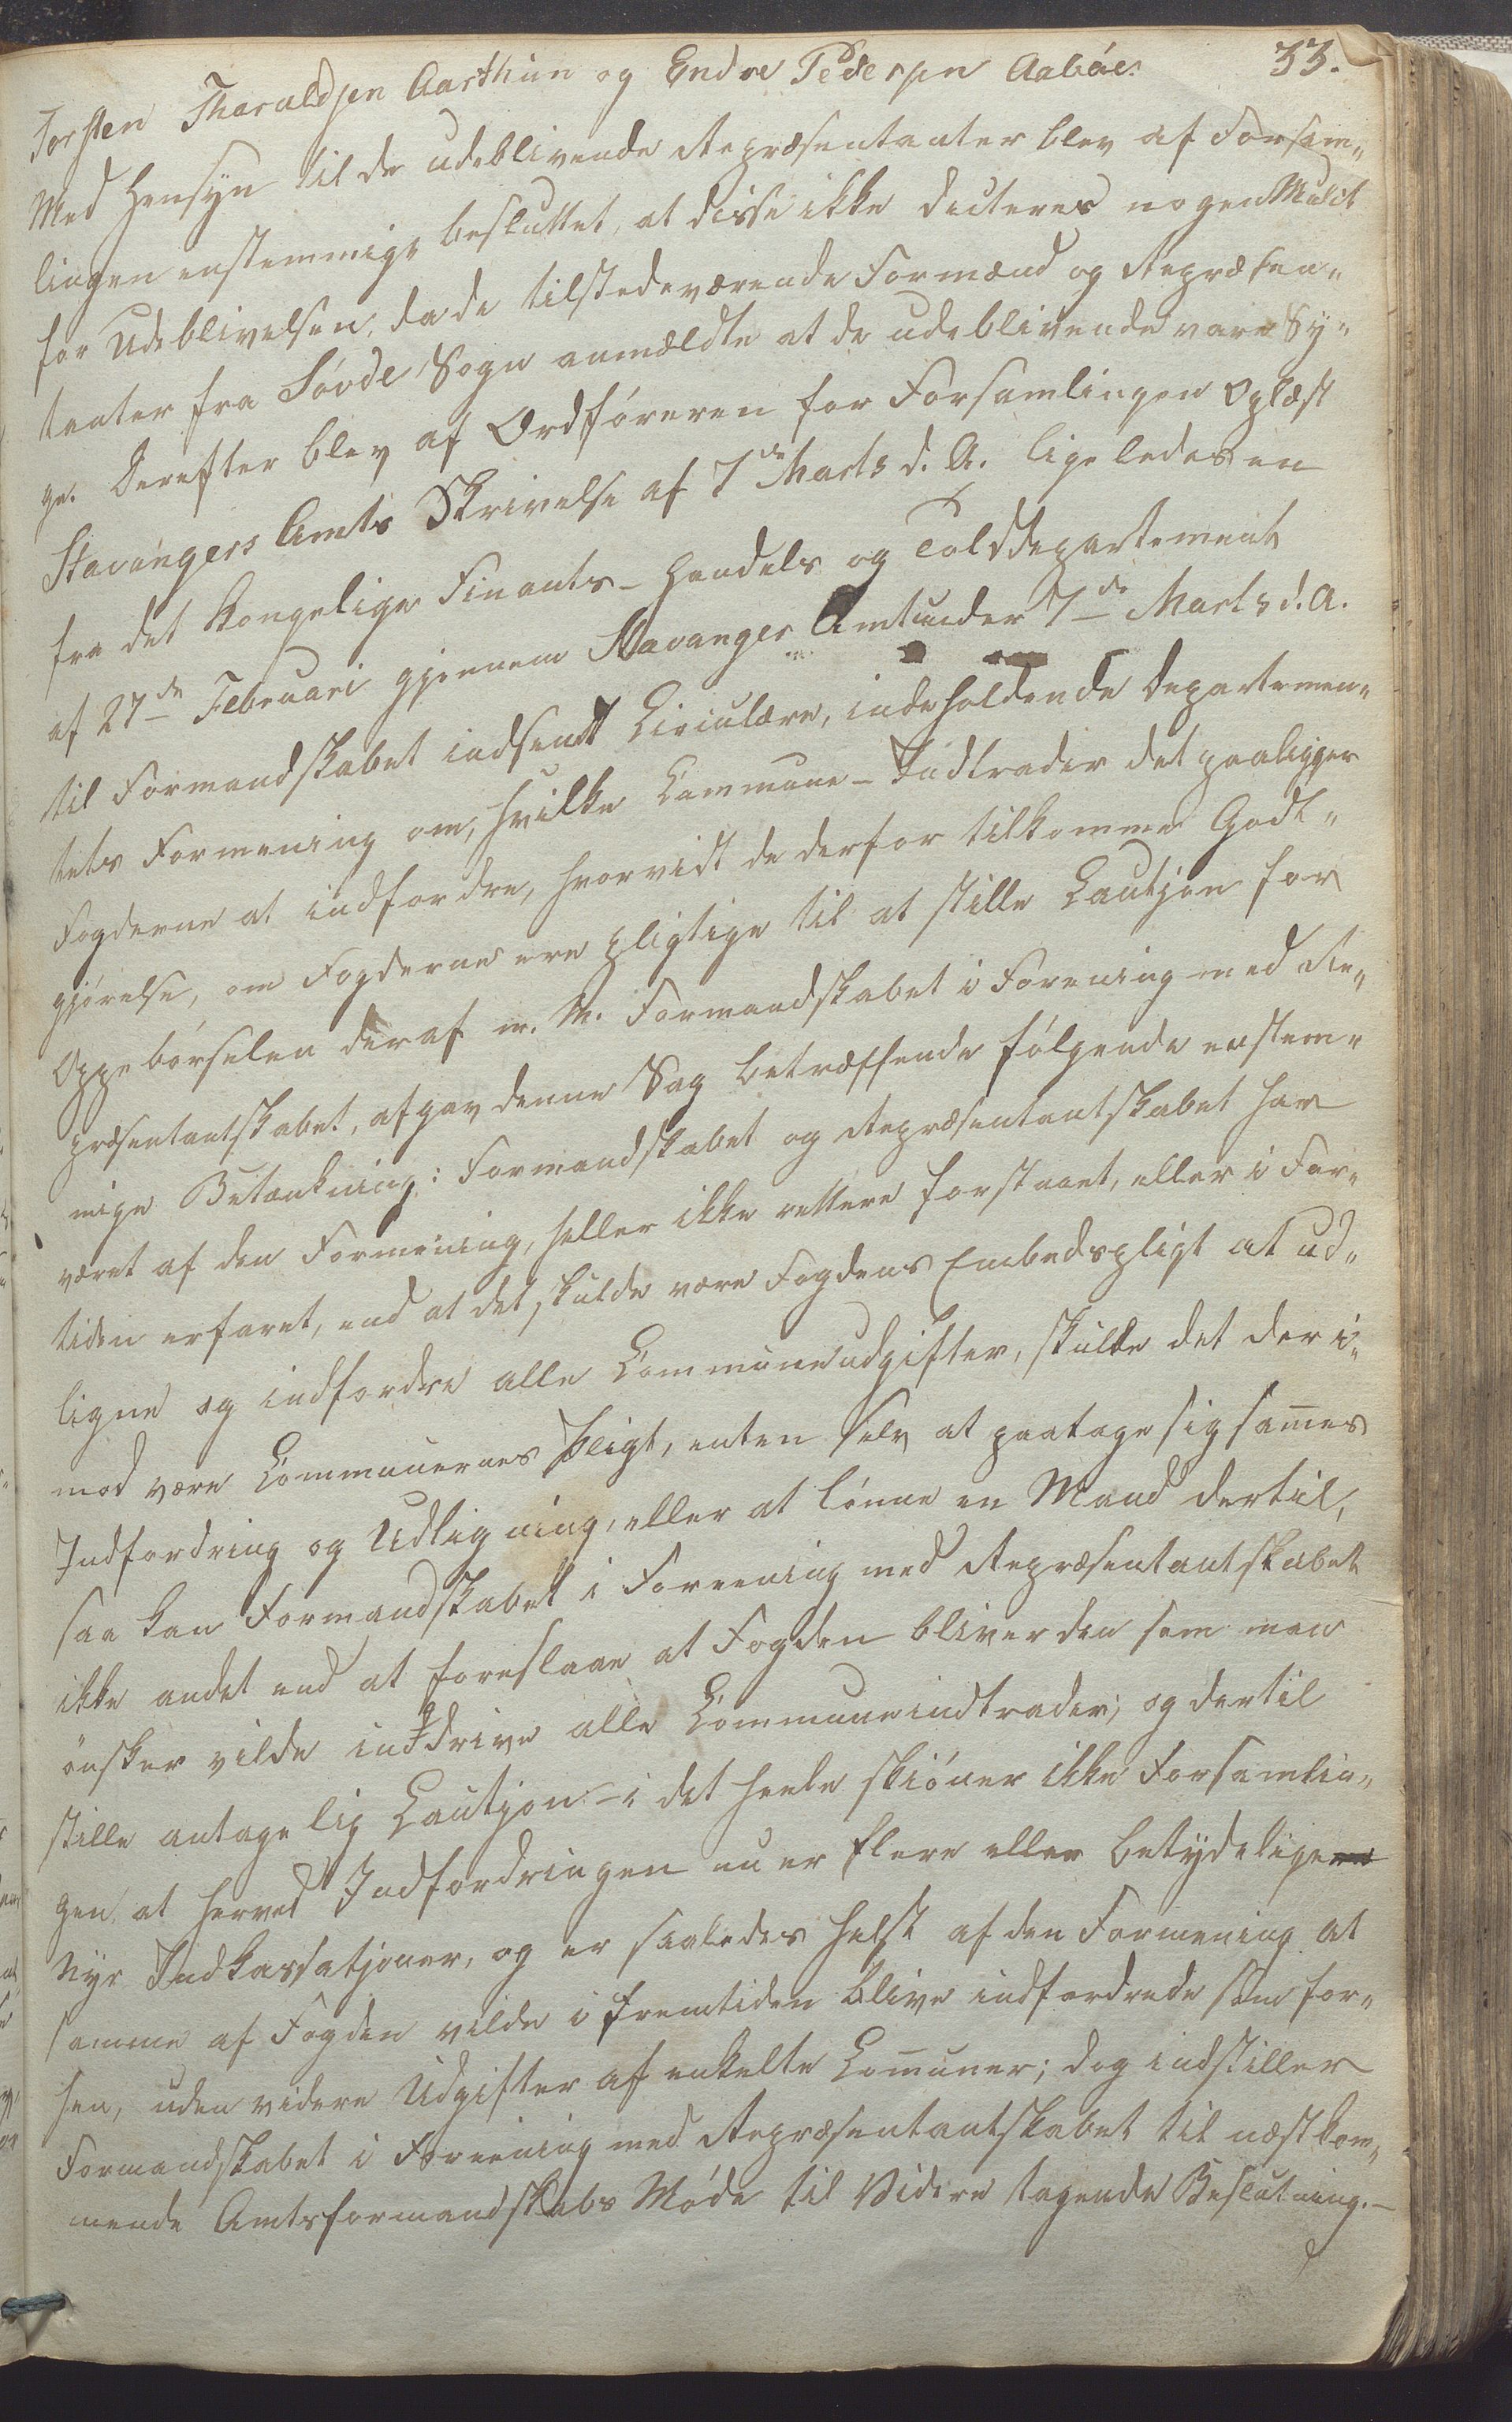 33.
Torsten Tharaldsen Aarthun og Endre Pedersen Aabøe.
Med Hensyn til de udeblivende Repræsentanter blev af Forsam„
lingen enstemmige besluttet, at disse ikke dicteres nogen Mulct
for Udeblivelsen, da de tilstedeværende Formænd og Repræsen„
tanter fra Søvde Sogn anmældte at de udeblivende vare Sy„
ge. Derefter blev af Ordføreren for Forsamlingen Oplæst
Stavangers Amts Skrivelse af 7de Marts d. A. ligeledes en
fra det Kongelige Finants- Handels og Tolddepartement
af 27de Februari gjennem Stavanger Amt under 7de Marts d. A.
til Formandskabet indsendt Circulære, indeholdende Departemen„
tets Formening om, hvilke Commune-Indtrader det paaligger
Fogderne at indfordre, hvorvidt de derfor tilkomme Godt„
gjørelse, om Fogderne ere pligtige til at stille Cautjon for
Oppebørselen deraf m. M. Formandskabet i Forening med Re„
præsentantskabet, afgav denne Sag betræffende følgende enstem„
mige Betænkning: Formandskabet og Repræsentantskabet har
været af den Formening, heller ikke rettere forstaaet, eller i For„
tiden erfaret, end at det skulde være Fogdens Embedspligt at ud„
ligne og indfordre alle Communeudgifter, skulde det der i„
mod være Communernes Pligt, enten selv at paatage sig sam̄es
Indfordring og Udligning, eller at lønne en Mand dertil,
saa kan Formandskabet i Foreening med Repræsentantskabet
ikke andet end at foreslaae at Fogden bliver den som man
ønsker vilde inddrive alle Communeindtrader; og dertil
stille antagelig Cautjon - i det heele skiøner ikke Forsamlin„
gen, at herved Indfordringen nu er flere eller betydelige
Nye Indkassatjoner, og er saaledes helst af den Formening at
samme af Fogden vilde i Fremtiden blive indfordrede som for„
hen, uden videre Udgifter af enkelte Com̄uner; dog indstiller
Formandskabet i Foreening med Repræsentantskabet til næstkom„
mende Amtsformandskabs Møde til Videre tagende Beslutning.-